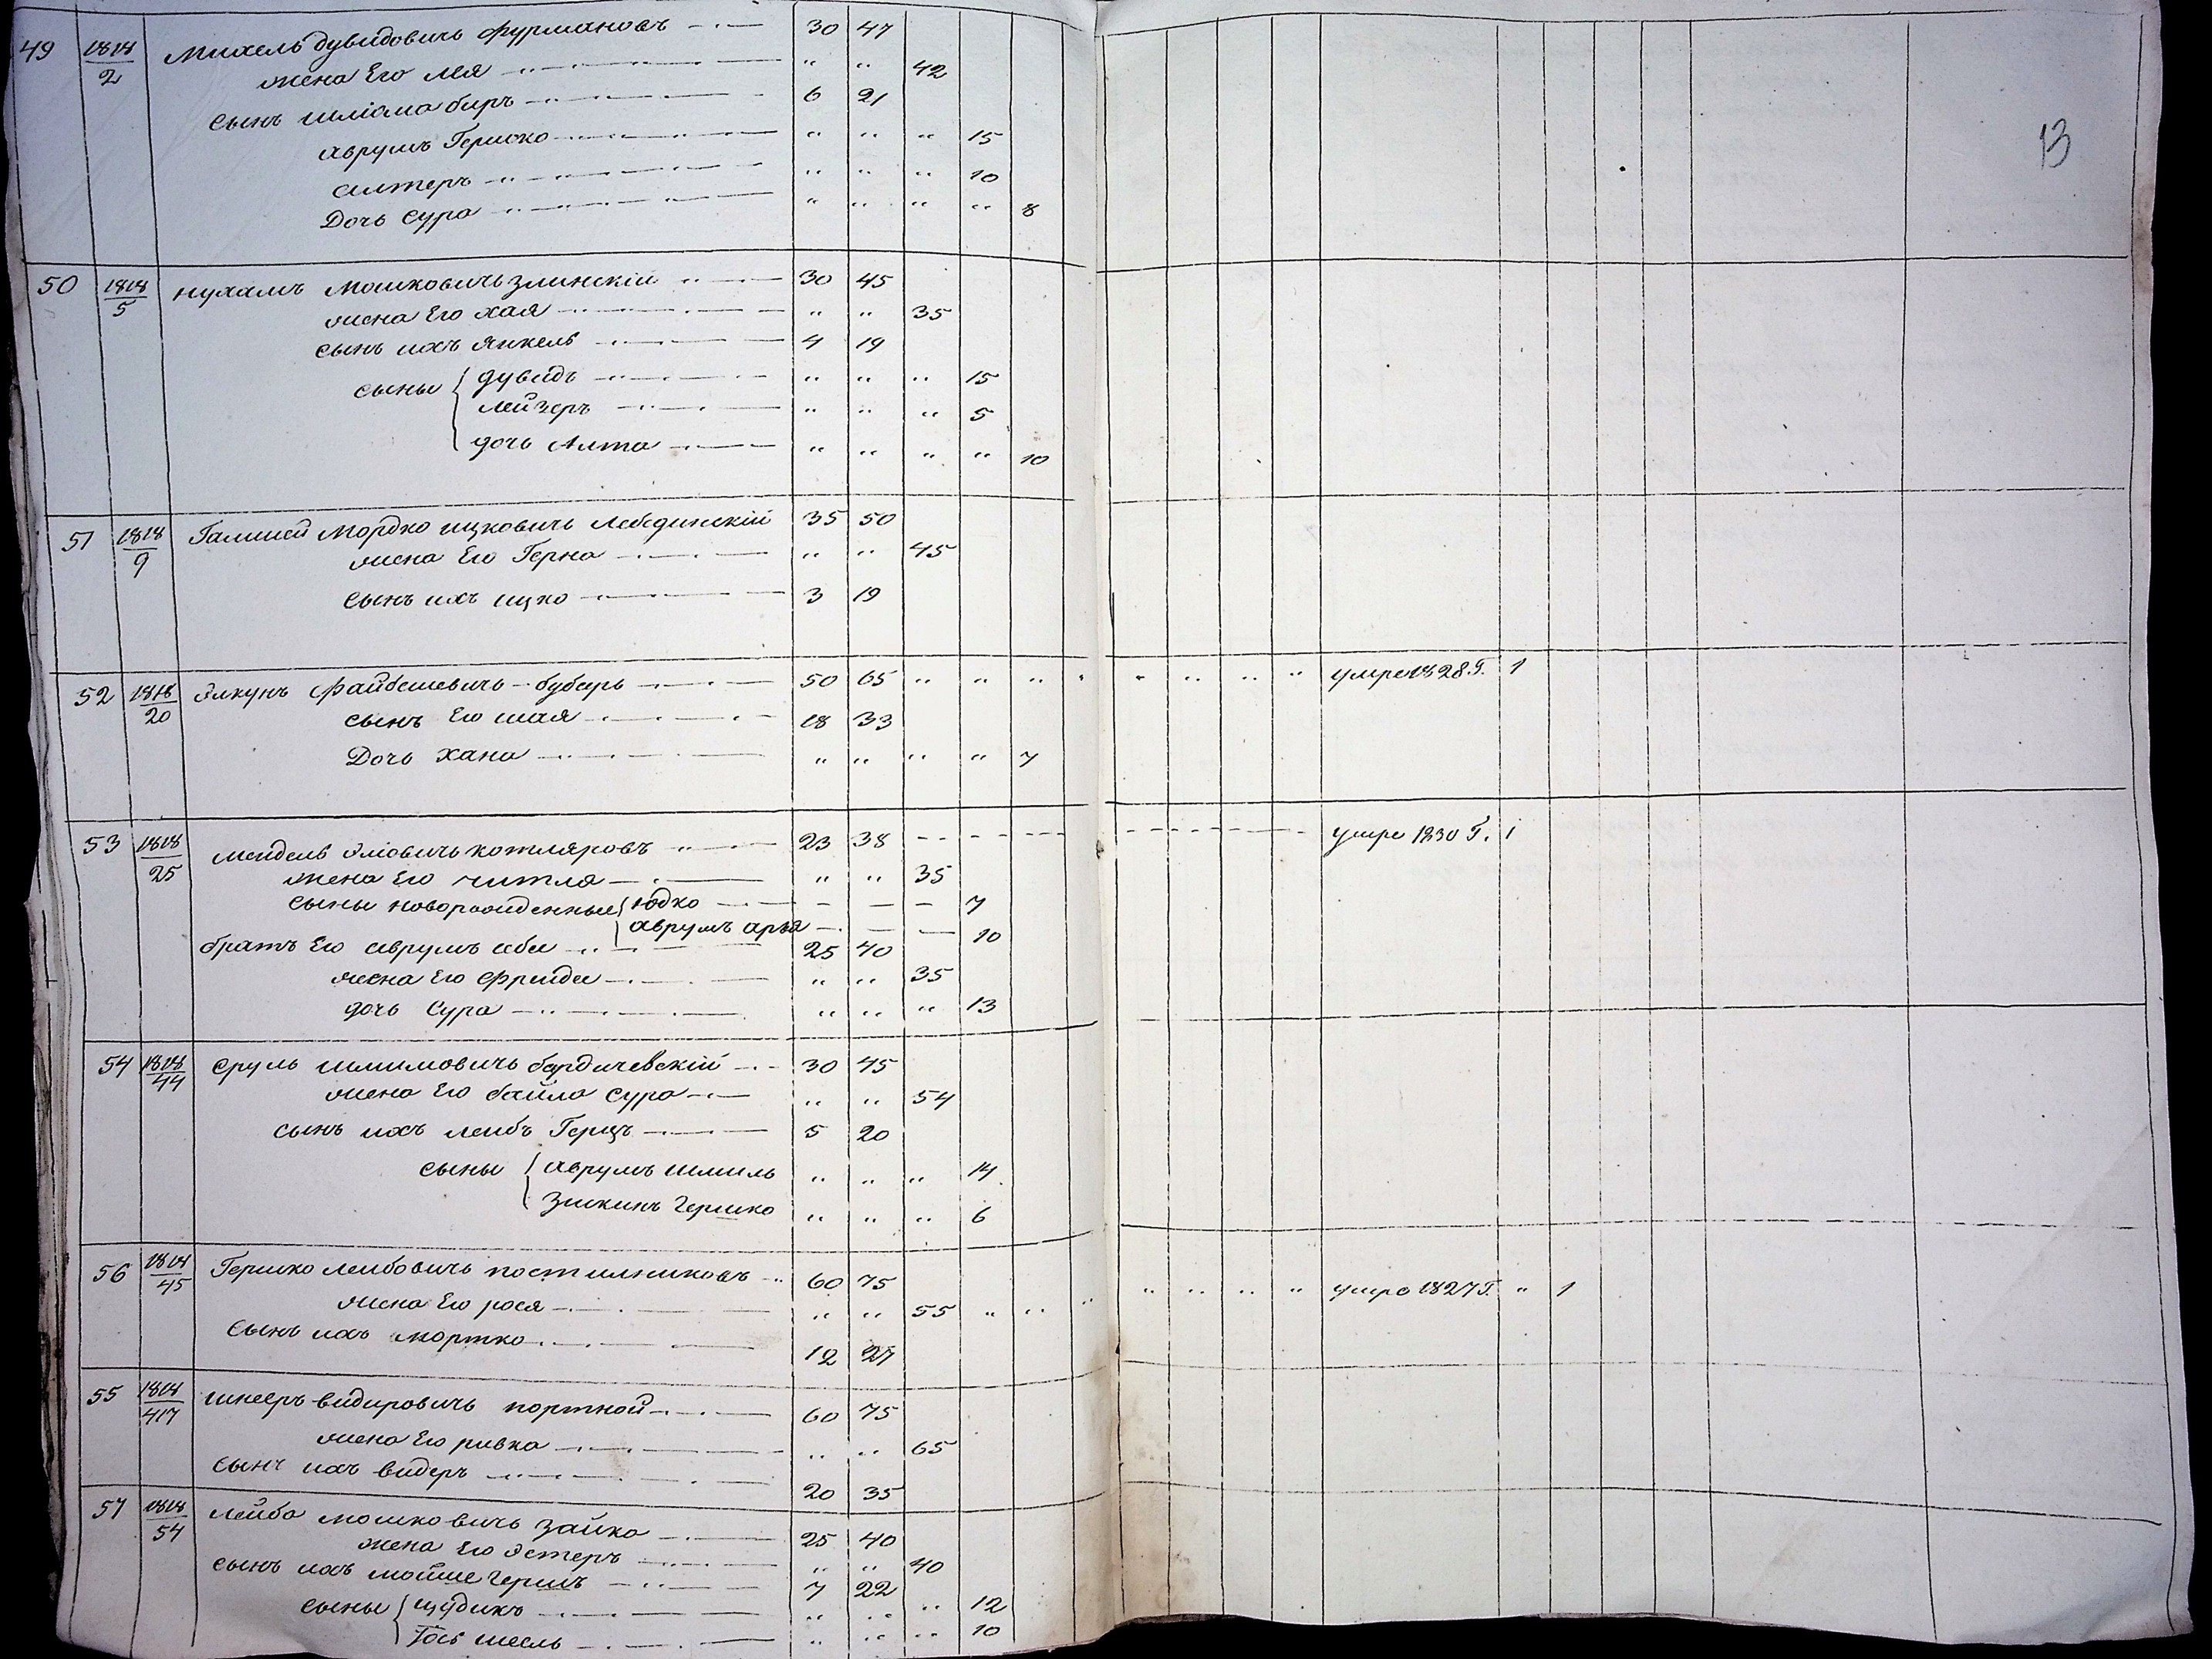 13
49 1818/2 Михель Дувидовичь Фурмановъ 30 47
жена Его Лея " " 42
сынъ Шліома Беръ 6 21
Аврумъ Гершко " " " 15
Алтеръ " " " 10
Дочь Сура " " " " 8
50 1818/5 Нухамъ Мошковичь Злинскій 30 45
жена Его Хая " " 35
сынъ ихъ Янкель 4 19
сыны { Дувидъ " " " 15
Лейзеръ " " " 5
дочь Алта " " " " 10
51 1818/9 Мордко Ицковичь Лебединскій 35 50
жена Его Герна " " 45
сынъ ихъ Ицко 3 19
52 1818/20 Элкунъ Файбешевичь Буберь 50 65 " " " " " " " " умре 1828 г. 1
сынъ Его Шая 18 33
Дочь Хана " " " " 7
53 1818/25 Мендель Эліовичь Котляровъ 23 38 умре 1830 г. 1
жена Его Читля " " 35
сыны новорожденные { Юдко 7
Аврумъ Арья 10
братъ Его Аврумъ Аба 25 40
жена Его Фрейда " " 35
дочь Сура " " " 13
54 1818/44 Сруль Шлимовичь Бердичевскій 30 45
жена Его Байла Сура " " 54
сынъ ихъ Лейбъ Герцъ 5 20
сыны { Аврумъ Шмиль " " " 14
Зискинъ Гершко " " " 6
56 1818/45 Гершко Лейбовичь Постильниковъ 60 75
жена Его Рося " " 55 " " " " " " " умре 1827 г. " 1
сынъ ихъ Мортко 12 27
55 1818/417 Шнееръ Видировичь Портной 60 75
жена Его Ривка " " 65
сынъ ихъ Видеръ 20 35
57 1818/54 Лейба Мошковичь Зайка 25 40
жена Его Эстеръ " " 40
сынъ ихъ Мойше Гершъ 7 22
сыны { Цудикъ " " " 12
Іось " " " 10